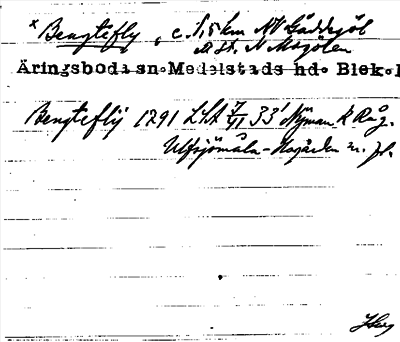 * Bengtefly, c. 1,5 km NV Gäddegöl
o. St. N Mogölen
Äringsboda sn. Medelstads hd. Blek.l
Bengteflÿ 1791 LSA 7/VI 33' Nyman k Råg.
Ulfsjömåla-Hogården m. fl.